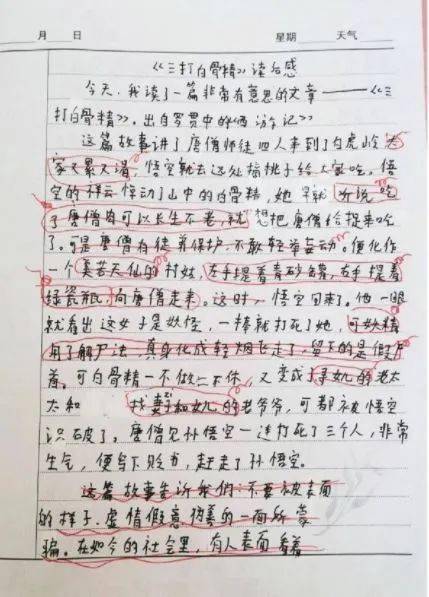 月 日 星期 天气
《三打白骨精》读后感
今天,我读了一篇非常有意思的文章——《三
打白骨精》。出自罗贯中的《西游记》
这篇故事讲了唐僧师徒四人来到了白虎岭大
家又累又渴,悟空就去远处摘桃子给大家吃。悟
空的祥云惊动了山中的白骨精,她早就听说吃
了唐僧肉可以长生不老,就想把唐僧给捉来吃
了。可是唐僧有徒弟保护,不敢轻举妄动。便化作
一个美若天仙的村姑,左手提着青砂罐,右手提着
绿瓷瓶,向唐僧走来。这时,悟空回来了。他一眼
就看出这女子是妖怪,一棒就打死了她,可妖精
用了解尸法,真身化成轻烟飞走了,留下的是假尸
首。可白骨精一不做二不休,又变成了寻女儿的老太
太和找妻子和女儿的老爷爷,可都被悟空
识破了。唐僧见孙悟空一连打死了三个人,非常
生气,便写下贬书,赶走了孙悟空。
这篇故事告诉我们:不要被表面
的样子、虚情假意伪善的一面所蒙
骗。在如今的社会里,有人表面看着